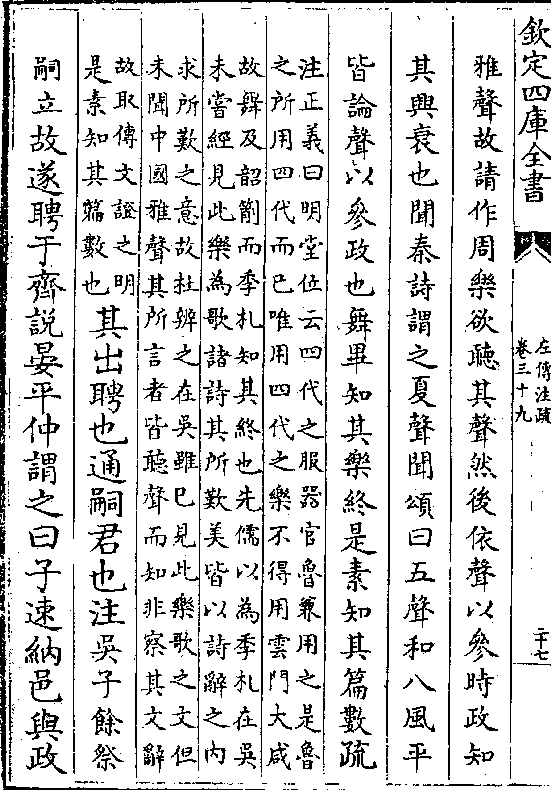 欽定四庫全書
左傳注疏
卷三十九
二十七
雅聲故請作周樂欲聽其聲然後依聲以參時政知
其興衰也聞秦詩謂之夏聲聞頌曰五聲和八風平
皆論聲以參政也舞畢知其樂終是素知其篇數疏
注正義曰明堂位云四代之服器官魯兼用之是魯
之所用四代而已唯用四代之樂不得用雲門大咸
故舞及韶箾而季札知其終也先儒以為季札在吳
未嘗經見此樂為歌諸詩其所歎美皆以詩辭之內
求所歎之意故杜辨之在吳雖已見此樂歌之文但
未聞中國雅聲其所言者皆聽聲而知非察其文辭
故取傳文證之明
是素知其篇數也
其出聘也通嗣君也注吳子餘祭
嗣立故遂聘于齊說晏平仲謂之曰子速納邑與政